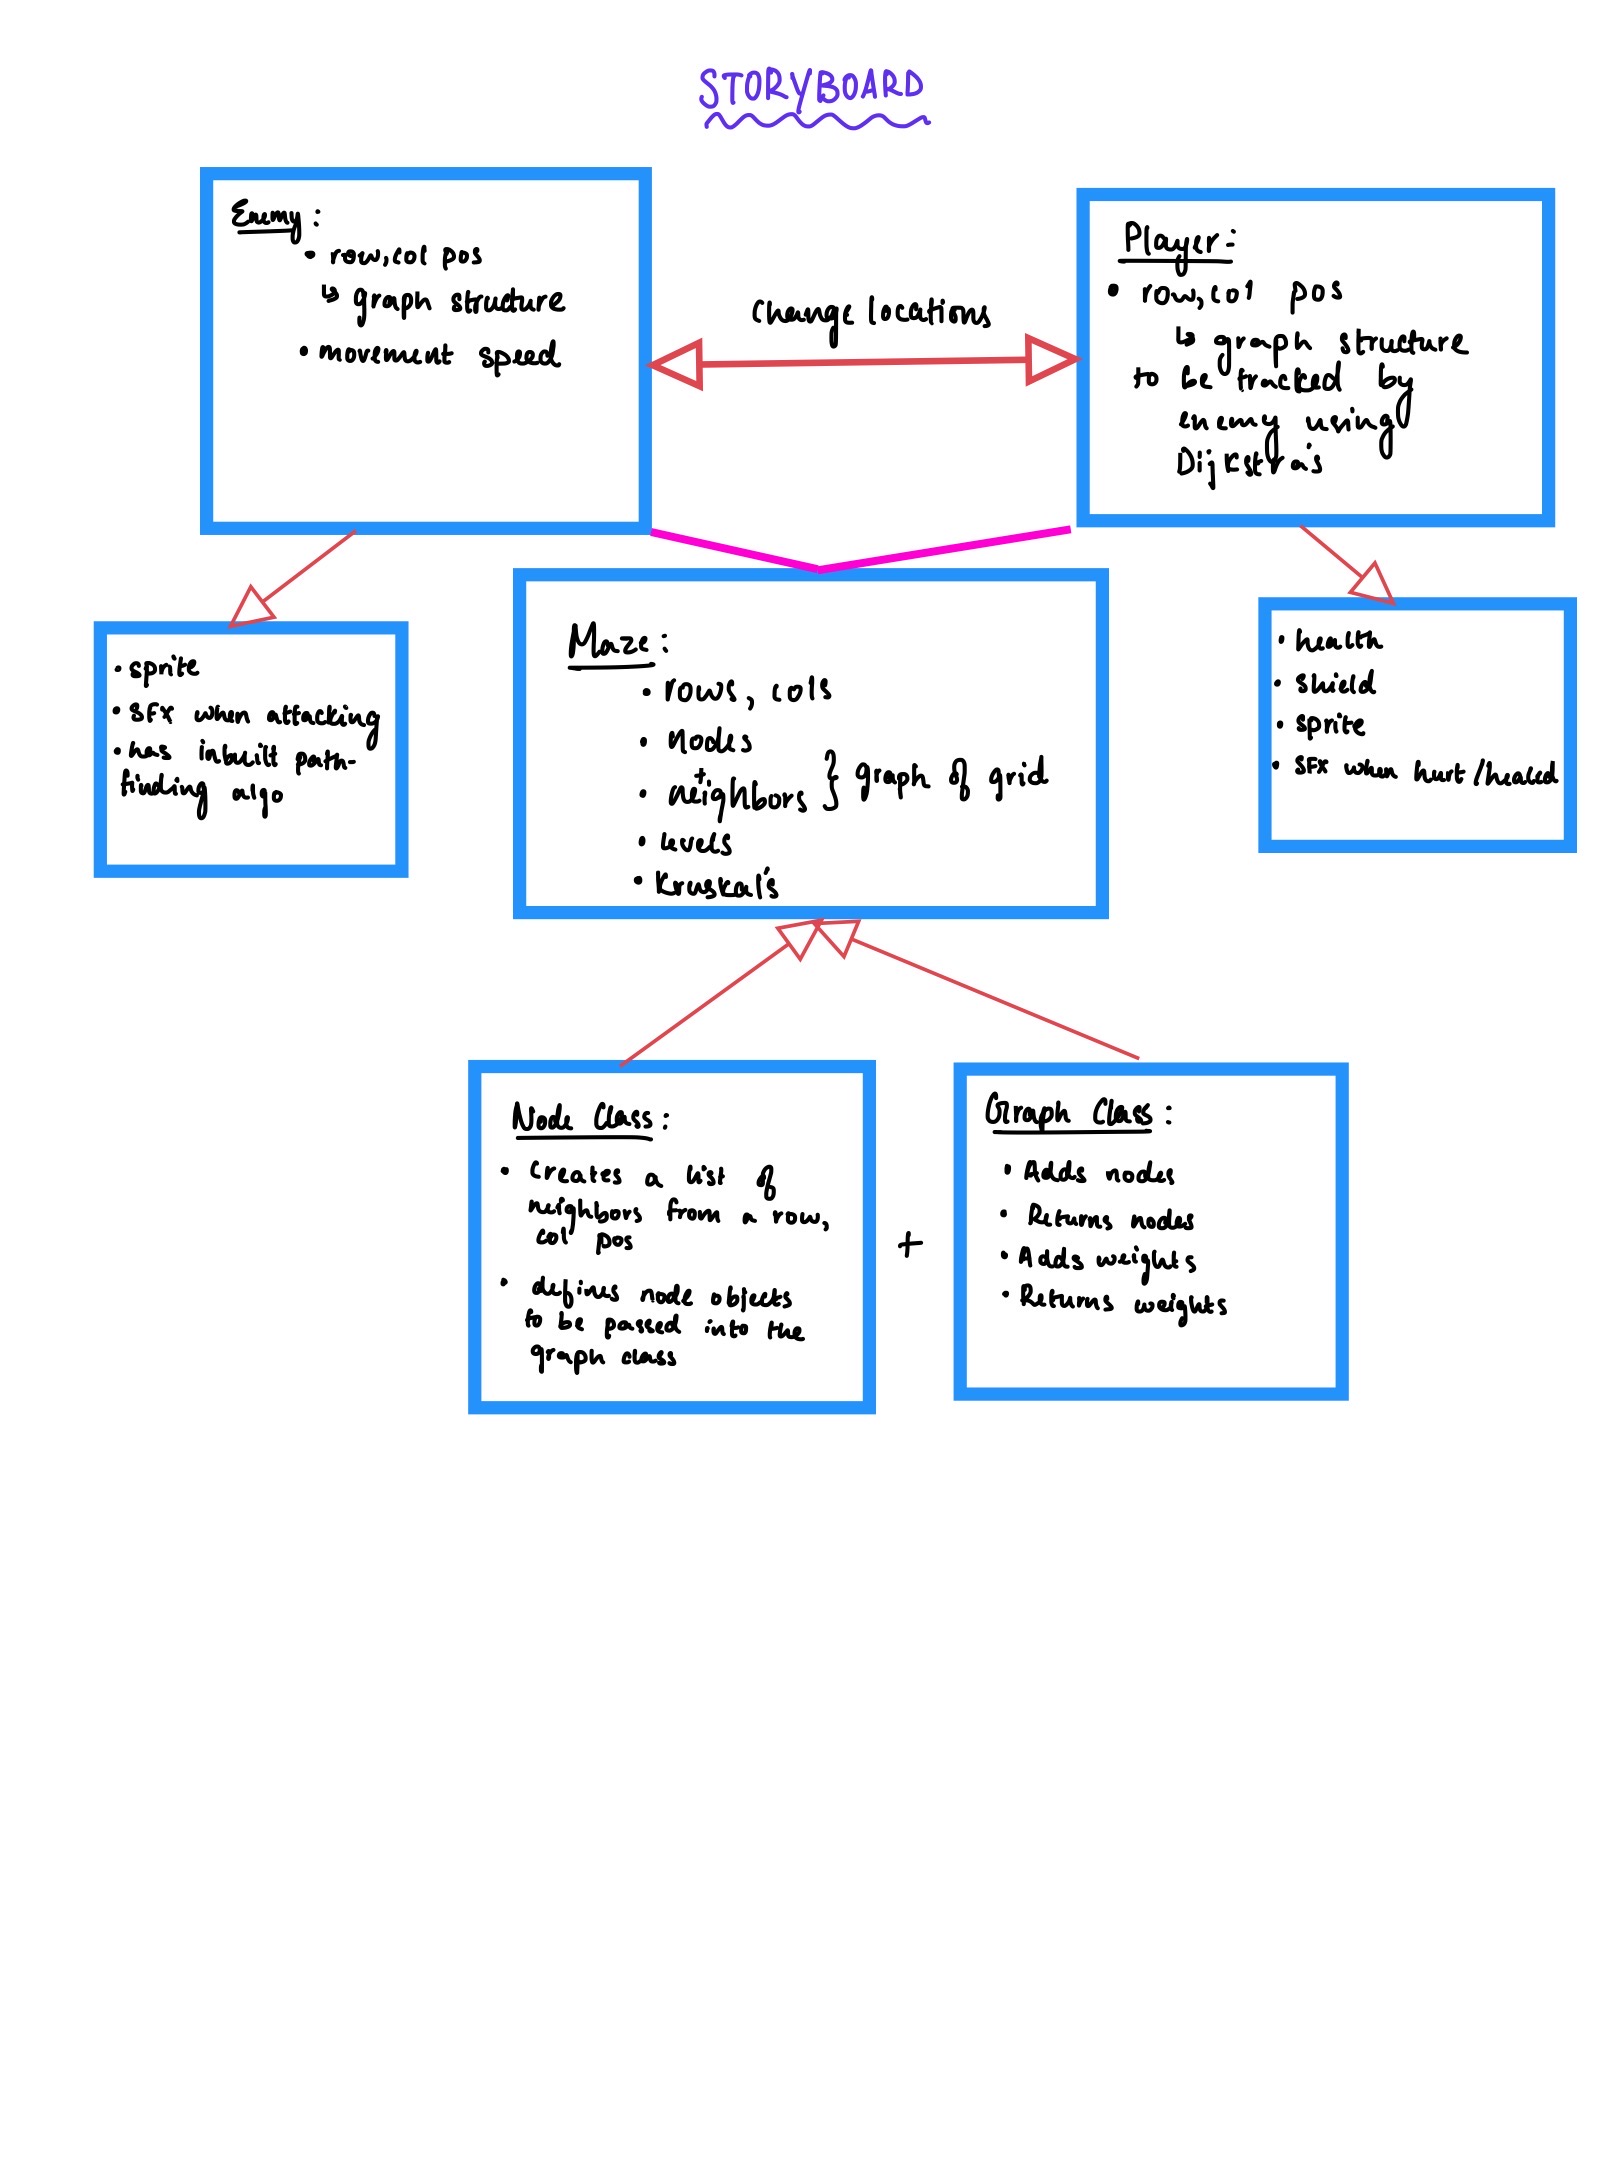 STORYBOARD
Enemy:
• row,col pos
↳ graph structure
• movement speed
Change locations
Player:
• row,col pos
↳ graph structure
to be tracked by
enemy using
Dijkstra's
• sprite
• SFX when attacking
• has inbuilt path-
finding algo
Maze:
• rows, cols
• nodes
+
• neighbors } graph of grid
• levels
• Kruskal's
• health
• shield
• sprite
• SFX when hurt/healed
Node Class:
• creates a list of
neighbors from a row,
col pos
• defines node objects
to be passed into the
graph class
+
Graph Class:
• Adds nodes
• Returns nodes
• Adds weights
• Returns weights